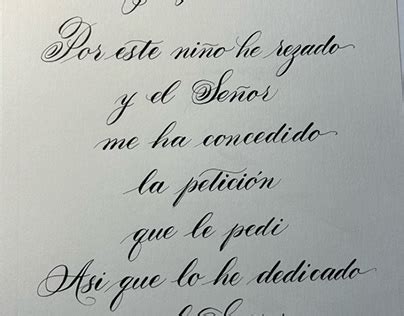 Por este niño he rezado
y el Señor
me ha concedido
la petición
que le pedi
Asi que lo he dedicado